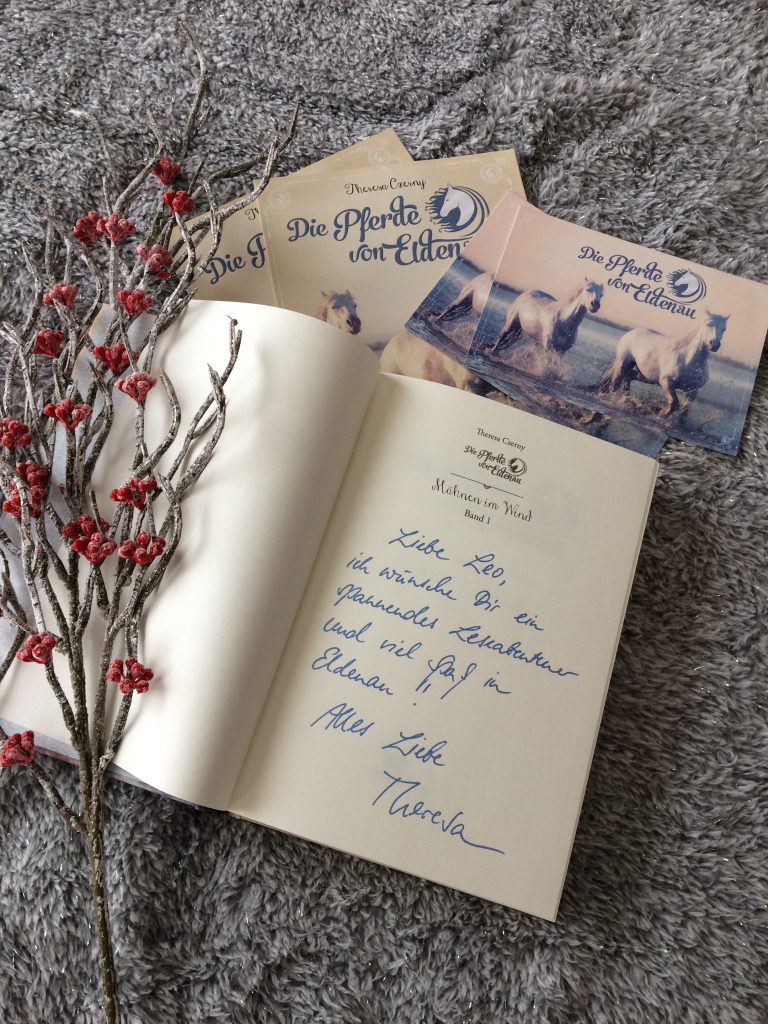 Th
Die P
Theresa Czerny
Die Pferde
von Eldenau
Die Pferde
von Eldenau
Theresa Czerny
Die Pferde
von Eldenau
Mähnen im Wind
Band 1
Liebe Leo,
ich wünsche Dir ein
spannendes Leseabenteuer
und viel Spaß in
Eldenau!!
Alles Liebe
Theresa